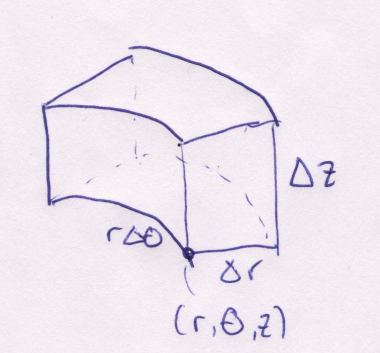 Δz
rΔθ
Δr
(r,θ,z)